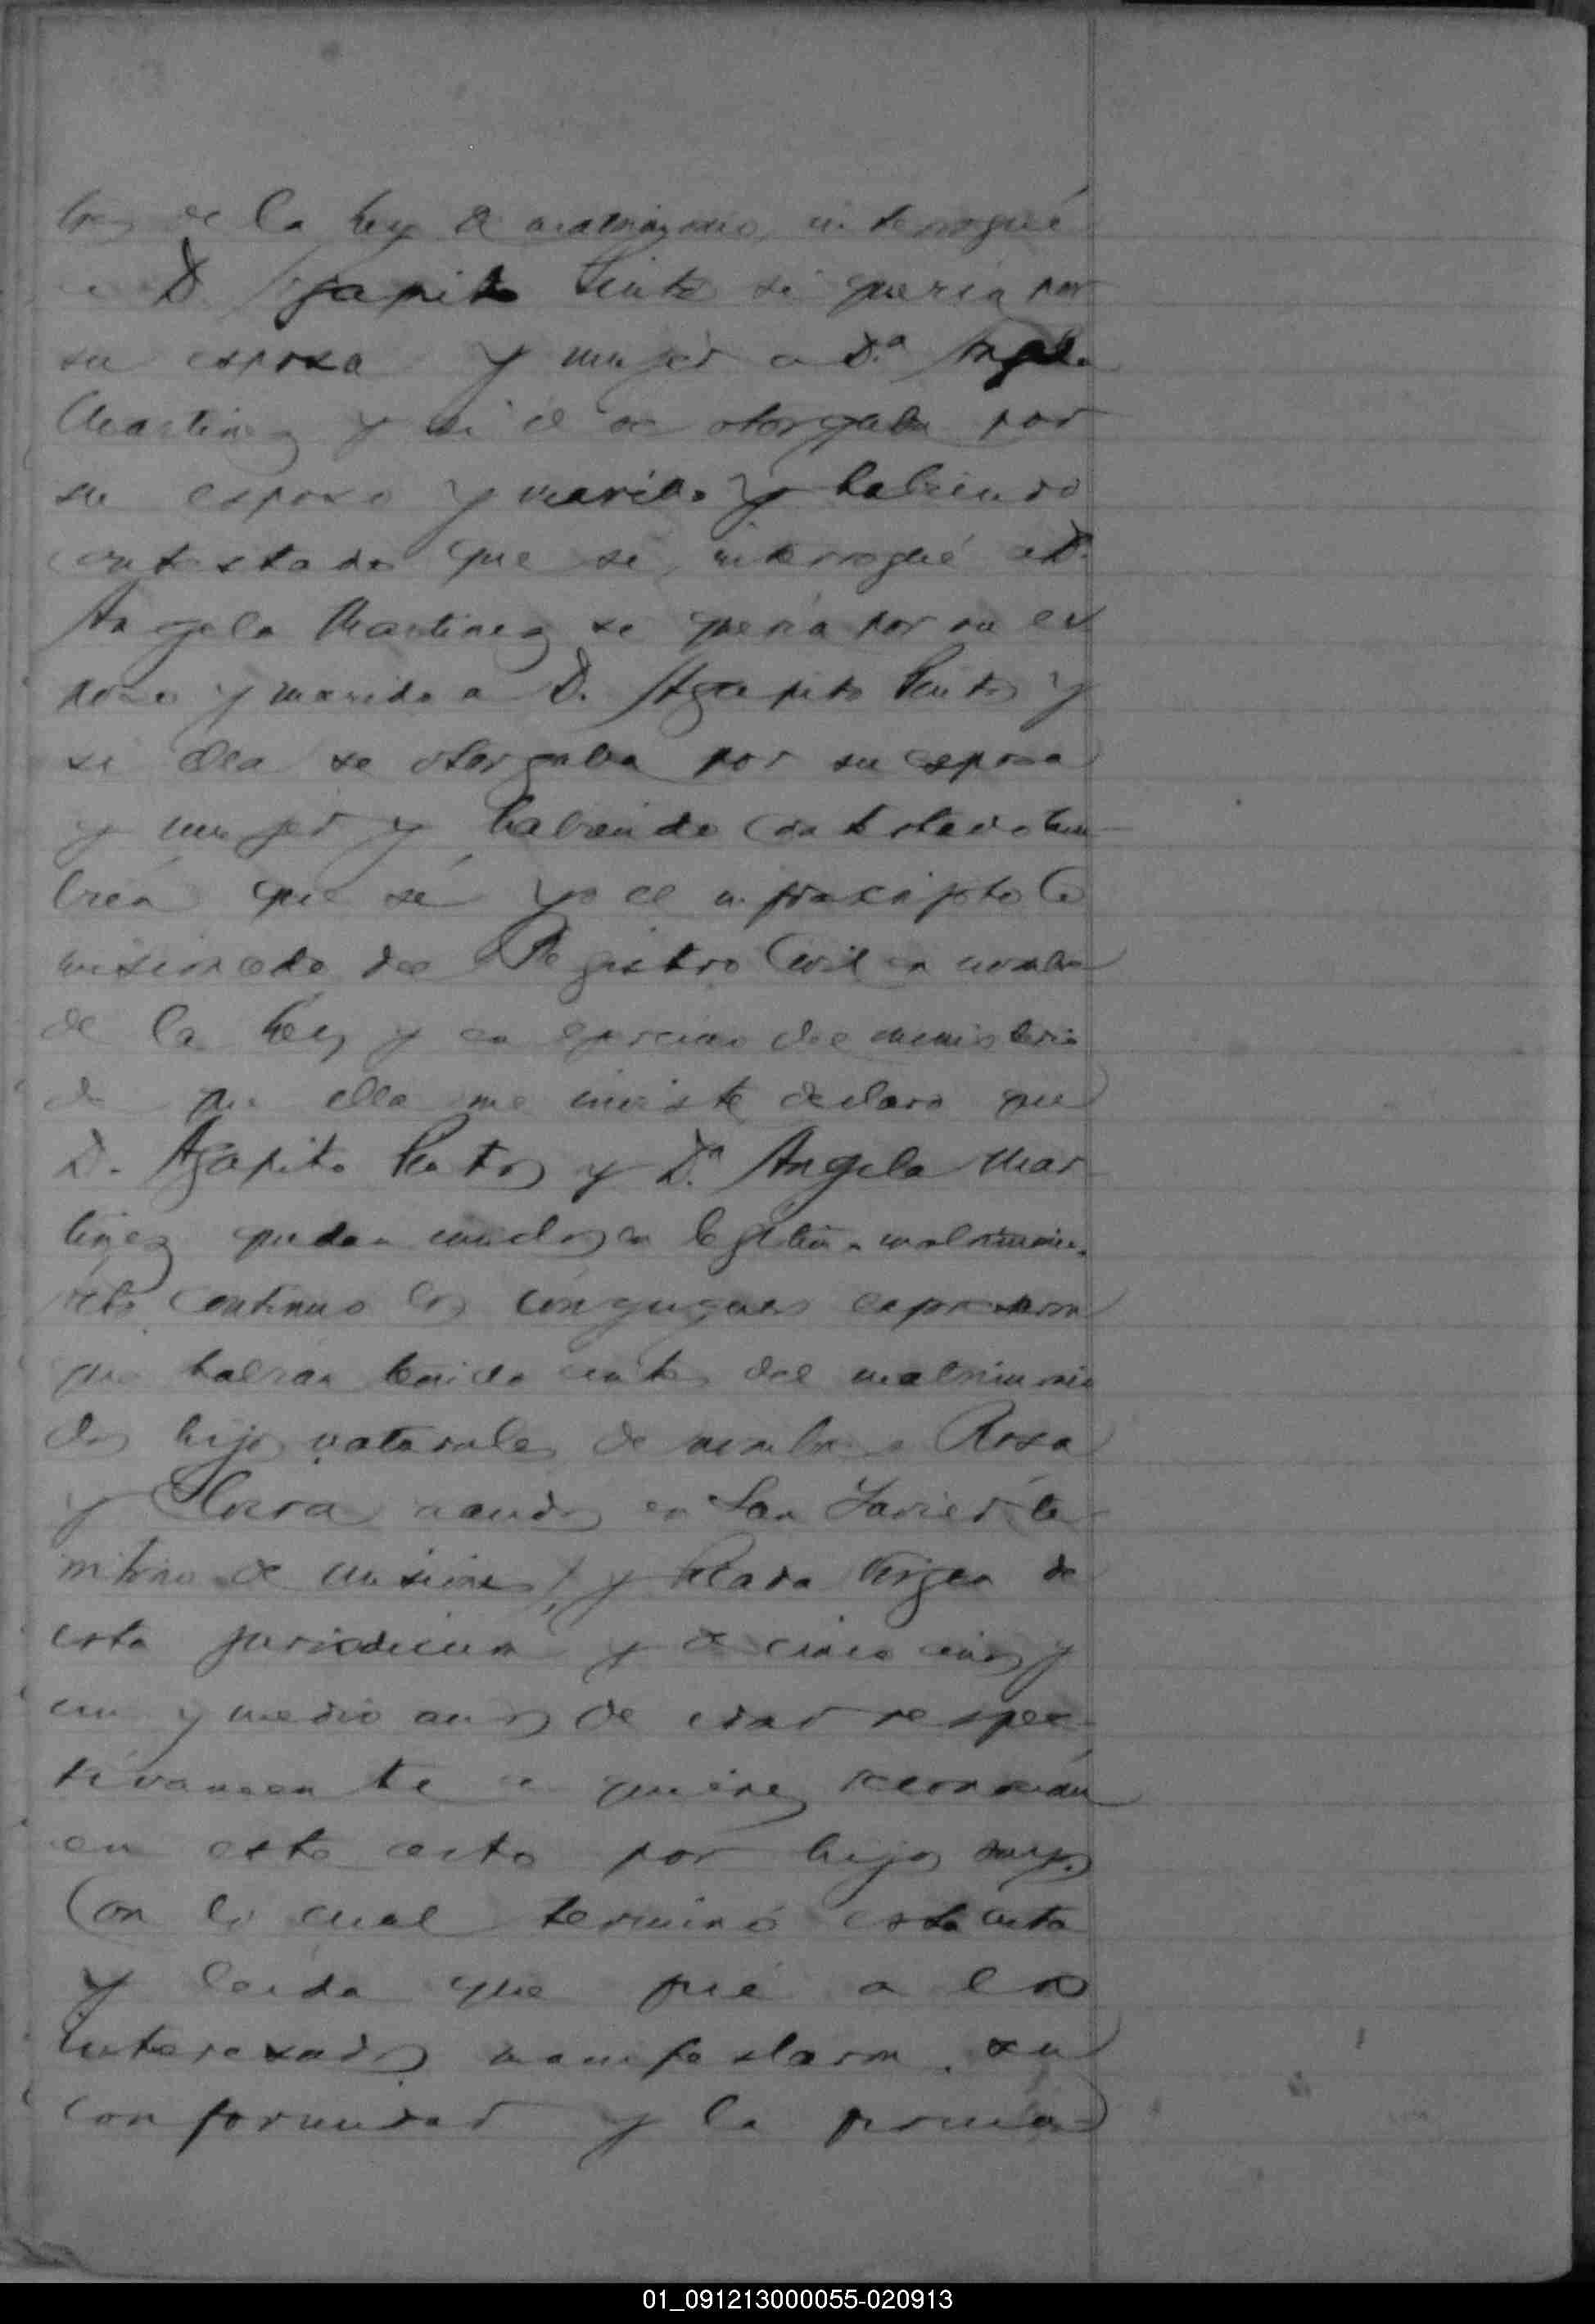 de la ley de matrimonio, interrogué
a D. Agapito si queria por
su esposa y mujer a D.ª Angela
Martinez y si él se otorgaba por
su esposo y marido y habiendo
contestado que si, interrogué a D.ª
Angela Martinez si queria por su es
poso y marido a D. Agapito y
si ella se otorgaba por su esposa
y mujer y habiendo contestado tam-
bien que sí yo el infrascripto Co
misionado del Registro Civil en nombre
de la Ley y en ejercicio del ministerio
de que ella me inviste declaro que
D. Agapito y D.ª Angela Mar-
tinez quedan unidos en legitimo matrimonio.
Acto continuo los conyuges expresaron
que habian tenido antes del matrimonio
dos hijos naturales de nombre Rosa
y nacidos en San Javier te-
rritorio de Misiones y de
esta jurisdiccion y de cinco años y
un y medio años de edad respec-
tivamente a quienes reconocian
en este acto por hijos suyos
Con lo cual terminó esta acta
y leida que fué a los
interesados manifestaron su
conformidad y la firma
01_091213000055-020913